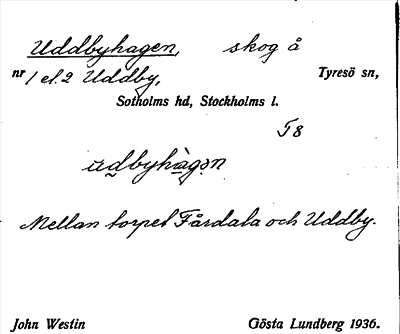 Uddbyhagen, skog å
nr 1 el. 2 Uddby, Tyresö sn,
Sotholms hd, Stockholms l.
T8
ùdbyhàgən
Mellan torpet Fårdala och Uddby.
John Westin Gösta Lundberg 1936.